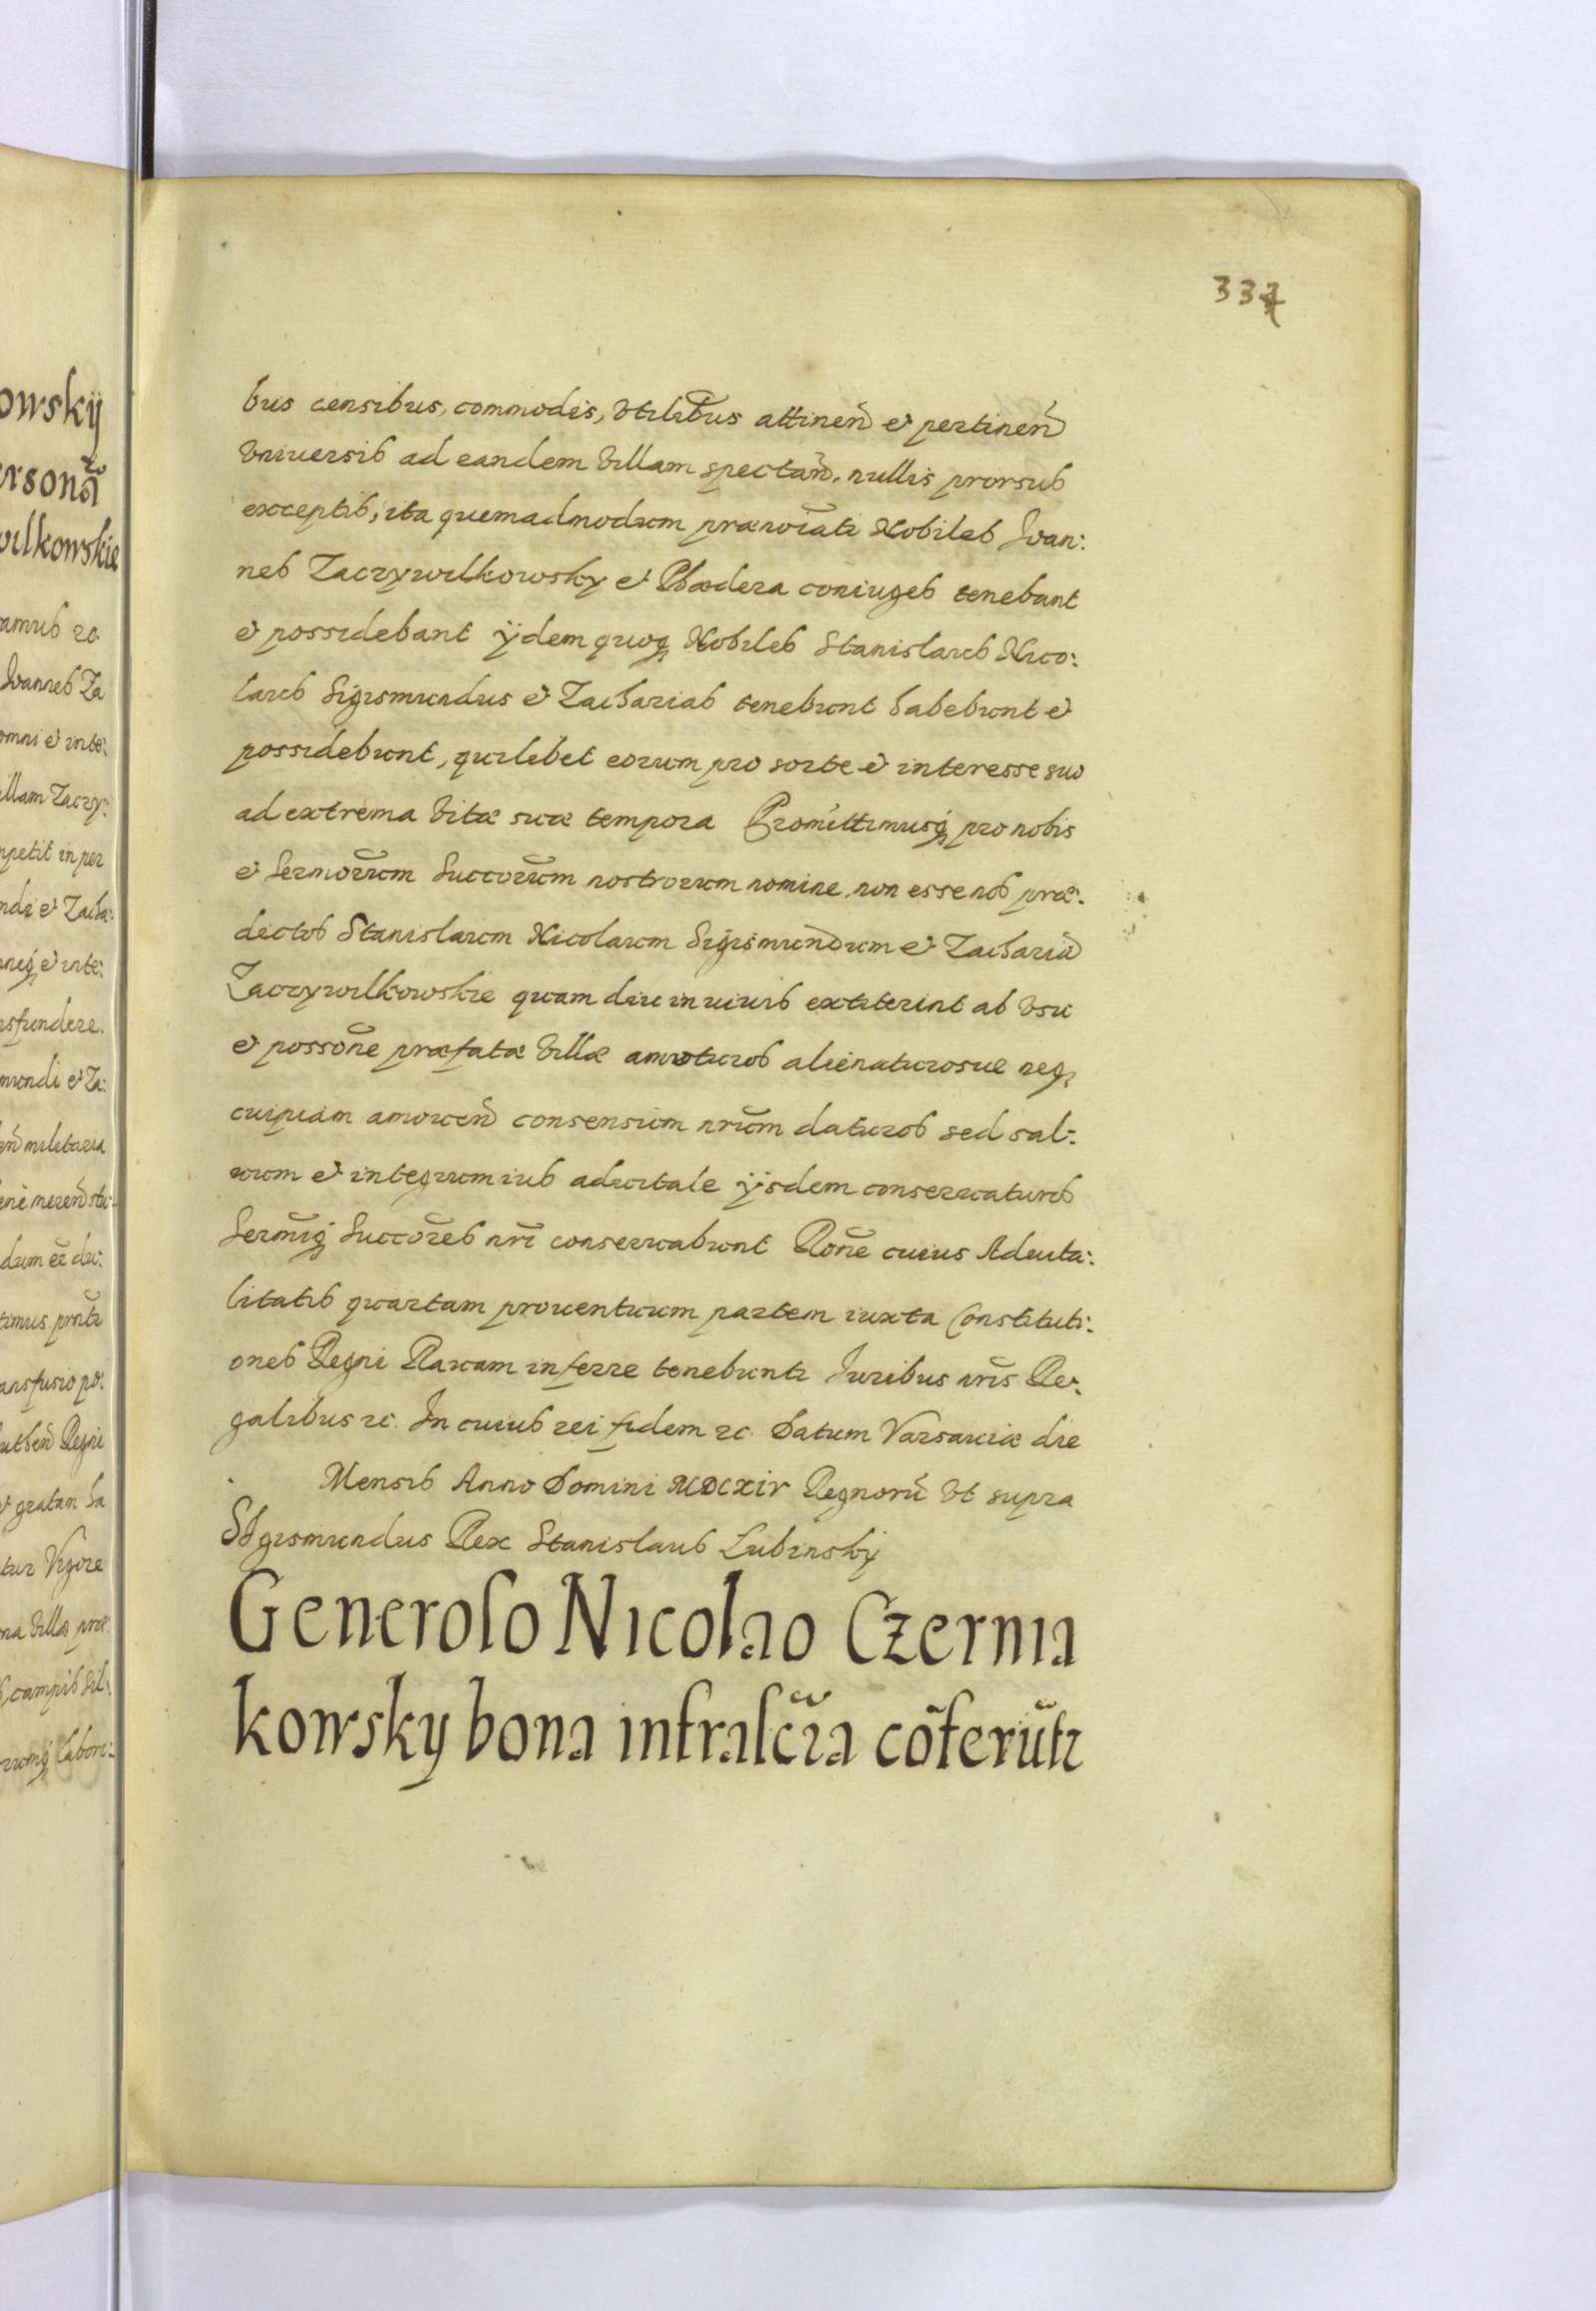 337
bus censibus, commodis, vtilibus attinen et pertinen
vniuersis ad eandem villam spectan. nullis prorsus
exceptis, ita quemadmodum prænoiati Nobiles Ioan:
nes Zaczywilkowsky et Phædera coniuges tenebant
et possidebant ÿdem quoq Nobiles Stanislaus Nico:
laus Sigismundus et Zacharias tenebunt habebunt et
possidebunt, quilibet eorum pro sorte et interesse suo
ad extrema vitæ suæ tempora Promittimusq pro nobis
et Sermorum Succorum nostrorum nomine non esse nos præ:
dictos Stanislaum Nicolaum Sigismundum et Zachariã
Zaczywilkowskie quam diu in viuis extiterint ab vsu
et possone præfatæ villæ amoturos alienaturosue neq
cuipiam amouen consensum nrum daturos sed sal:
uum et integrum ius aduitale ÿsdem conseruaturos
Sermiq Succores nri conseruabunt Rone cuius Aduita:
litatis quartam prouentuum partem iuxta Constituti:
ones Regni Rauam inferre tenebuntr Iuribus nris Re:
galibus zc. In cuius rei fidem zc. Datum Varsauiæ die
Mensis Anno Domini MDCXIV Regnorũ vt supra
Sigismundus Rex Stanislaus Lubinsky
Generoso Nicolao Czernia
kowsky bona infrascria cõferũtr
owskÿ
ersonã
wilkowskie
amus zc
Ioannes Za
omni et inte:
illam Zaczy:
mpetit in per
ndi et Zacha:
neq et inte:
nsfundere.
mundi et Za:
en militaria
ene meren stu:
dum ee du:
timus. prntr
ansfusio po:
uthen Regni
et gratam ha
tur Vigore
na villæ præ:
s, campis sil:
rumq labori: